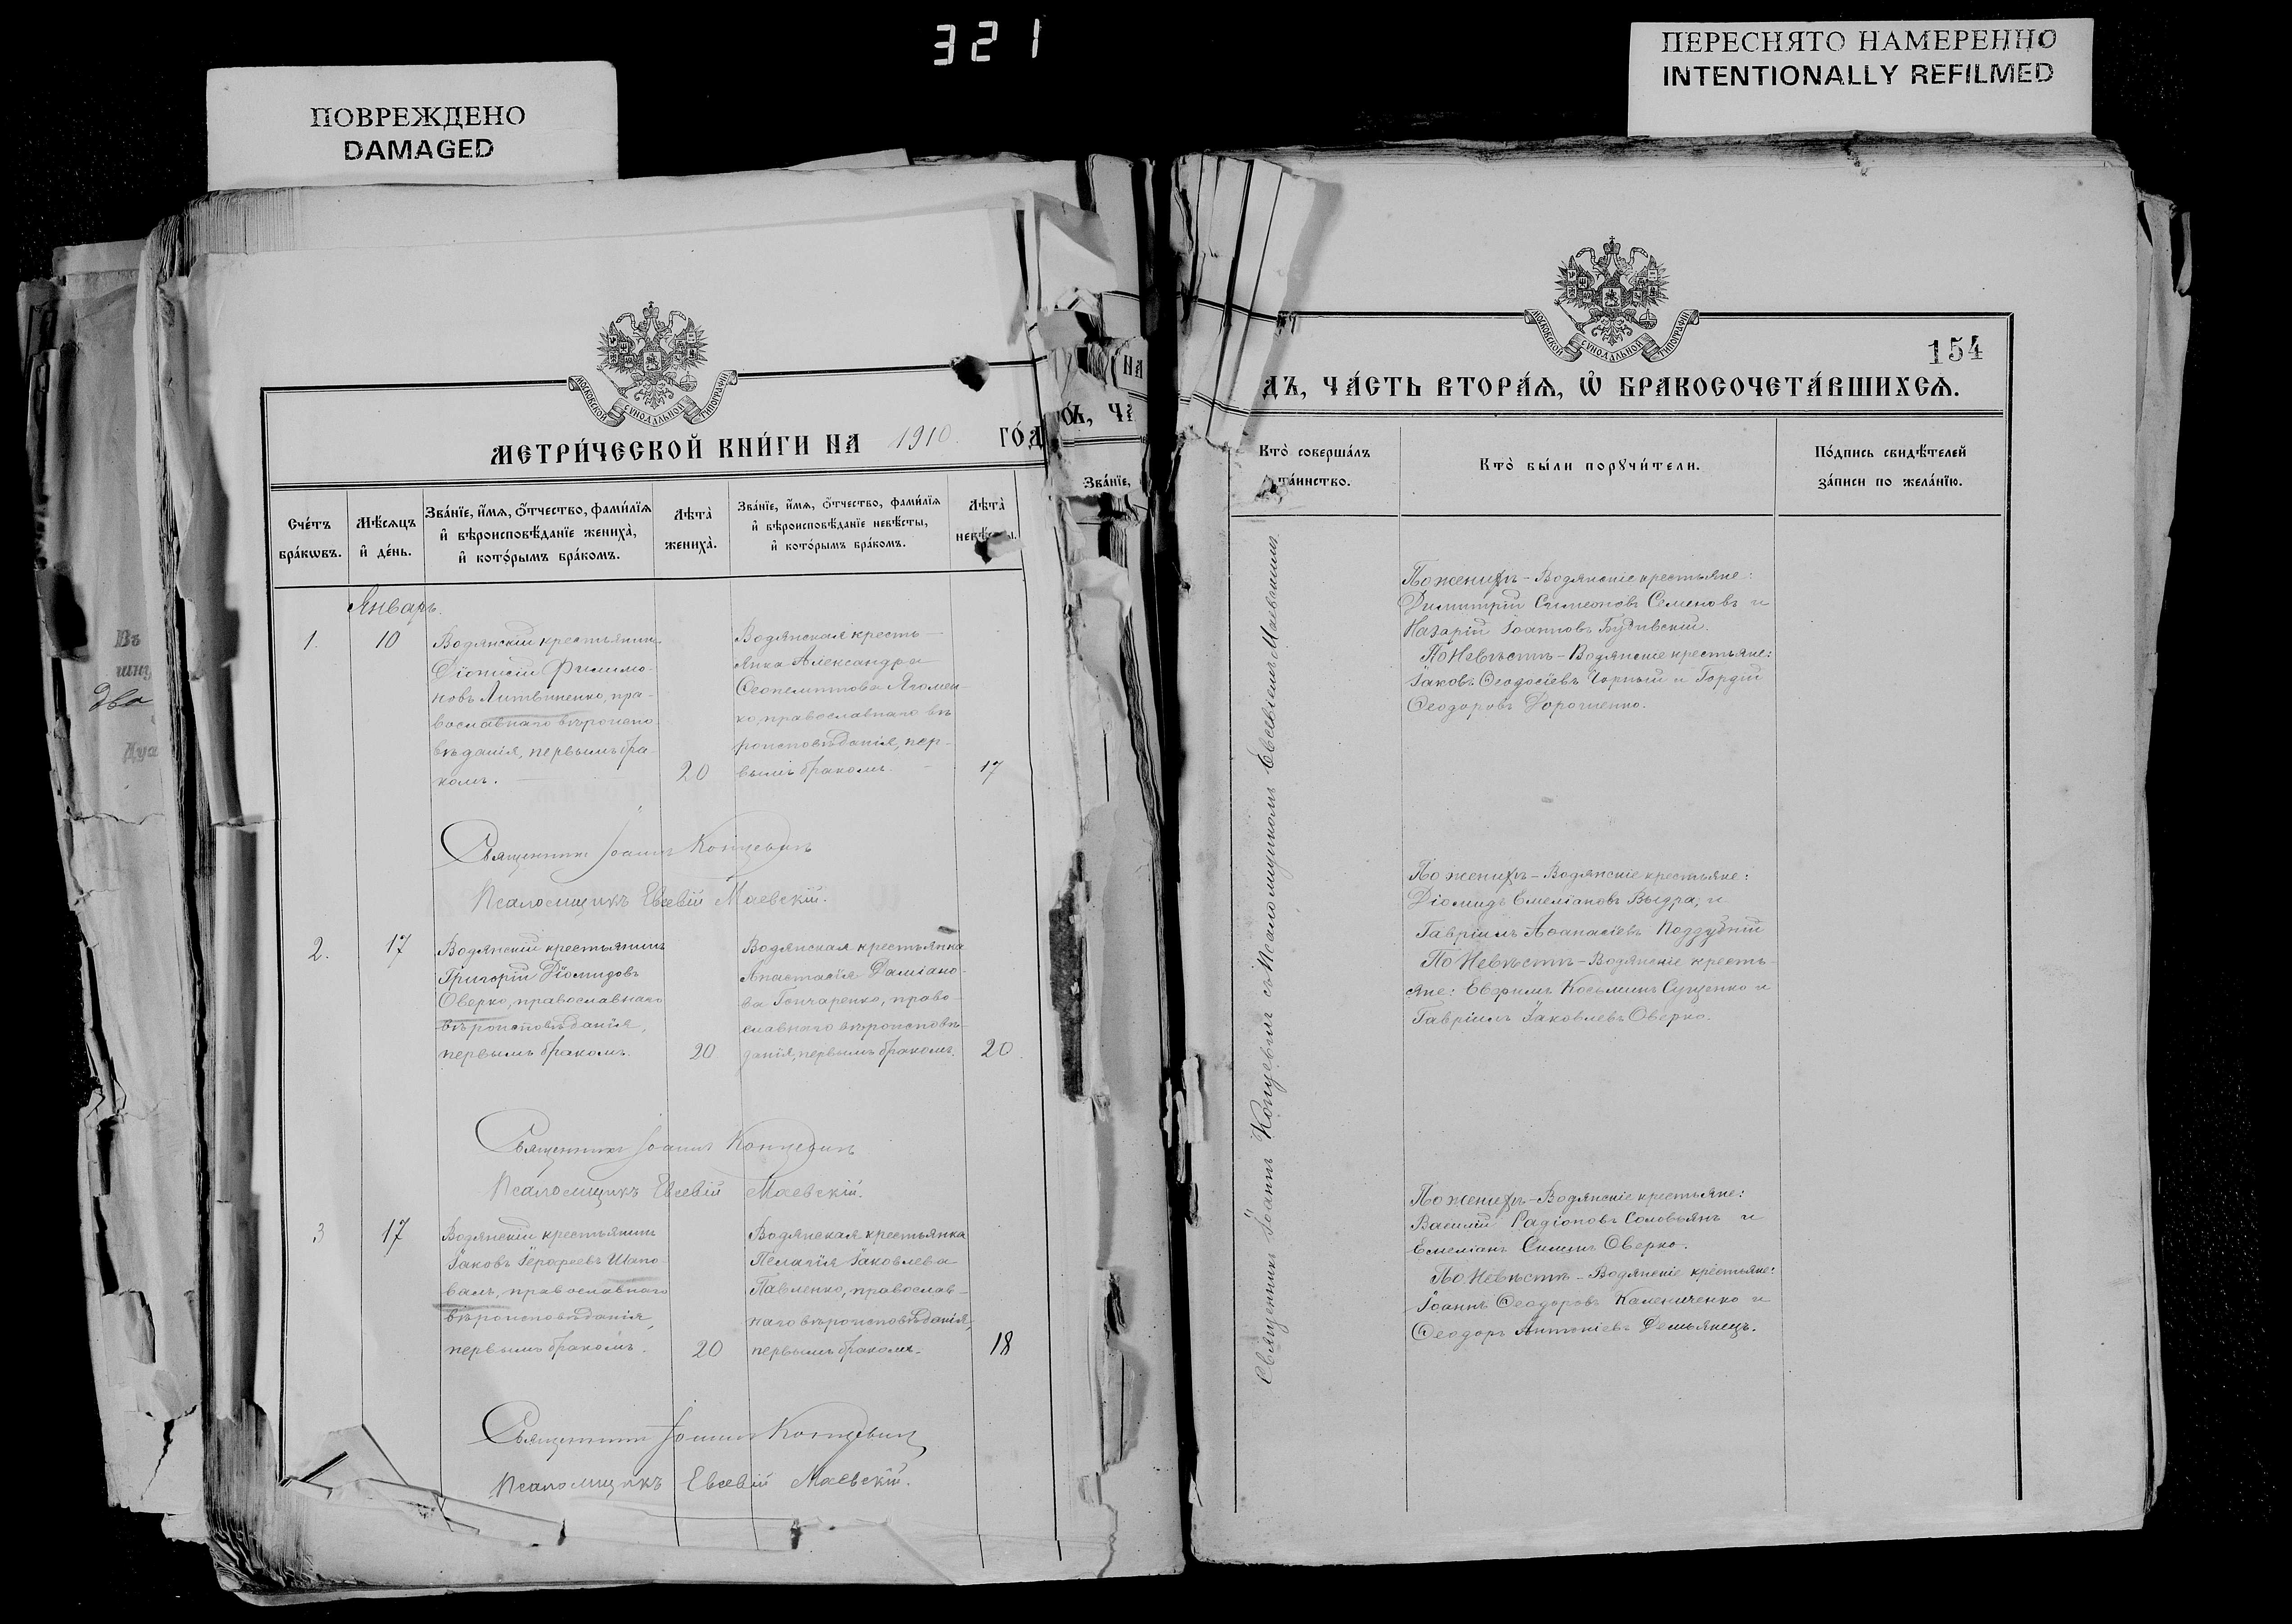 321
ПОВРЕЖДЕНО
DAMAGED
ПЕРЕСНЯТО НАМЕРЕННО
INTENTIONALLY REFILMED
МОСКОВСКОЙ СѴНОДАЛЬНОЙ ТИПОГРАФІИ
МЕТРИ́ЧЕСКОЙ КНИ́ГИ НА 1910. ГО́Д
Сче́тъ бра́кѡвъ.
Мѣ́сяцъ и҆ де́нь.
Зва́нїе, и҆́мѧ, ѻ҆́тчество, фами́лїѧ
и҆ вѣроисповѣ́данїе жениха̀,
и҆ кото́рымъ бра́комъ.
Лѣта̀ жениха̀.
Зва́нїе, и҆́мѧ, ѻ҆́тчество, фами́лїѧ
и҆ вѣроисповѣ́данїе невѣ́сты,
и҆ кото́рымъ бра́комъ.
Лѣта̀
Январь.
1. 10
Водянскій крестьянинъ
Діонисій Филимо-
новъ Литвиненко, пра-
вославнаго вѣроиспо-
вѣданія, первымъ бра-
комъ.
20
Водянская кресть-
янка Александра
Ѳеопемптова Яломен-
ко, православнаго вѣ
роисповѣданія, пер-
вымъ бракомъ.
17
Священникъ Іоаннъ Концевичъ
Псаломщикъ Евсевій Маевскій.
2. 17
Водянскій крестьянинъ
Григорій Діомидовъ
Оверко, православнаго
вѣроисповѣданія,
первымъ бракомъ.
20
Водянская крестьянка
Анастасія Даміано-
ва Гончаренко, право-
славнаго вѣроисповѣ-
данія, первымъ бракомъ.
20.
Священникъ Іоаннъ Концевичъ
Псаломщикъ Евсевій Маевскій.
3 17
Водянскій крестьянинъ
Іаковъ Іерофеевъ Шапо-
валъ, православнаго
вѣроисповѣданія,
первымъ бракомъ.
20
Водянская крестьянка
Пелагія Іаковлева
Павленко, православ-
наго вѣроисповѣданія,
первымъ бракомъ.
18
Священникъ Іоаннъ Концевичъ
Псаломщикъ Евсевій Маевскій.
Въ
два
НА
Зва́нїе,
МОСКОВСКОЙ СѴНОДАЛЬНОЙ ТИПОГРАФІИ
154
ДЪ, ЧА́СТЬ ВТОРА́Ѧ, Ѽ БРАКОСОЧЕТА́ВШИХСѦ.
Кто̀ соверша́лъ
та́инство.
Кто̀ бы́ли порꙋчи́тели.
По́дпись свидѣ́телей
за́писи по жела́нїю.
Священникъ Іоаннъ Концевичъ съ Псаломщикомъ Евсевіемъ Маевскимъ.
По женихѣ - Водянскіе крестьяне:
Димитрій Симеоновъ Семеновъ и
Назарій Іоанновъ Будивскій.
По Невѣстѣ - Водянскіе крестьяне:
Іаковъ Ѳеодосіевъ Чорный и Гордій
Ѳеодоровъ Дорошенко.
По женихѣ - Водянскіе крестьяне:
Діомидъ Емеліановъ Выдра, и
Гавріилъ Аѳанасіевъ Поддубній
По Невѣстѣ - Водянскіе кресть-
яне: Евфимъ Косьминъ Сущенко и
Гавріилъ Іаковлевъ Оверко.
По женихѣ - Водянскіе крестьяне:
Василій Радіоновъ Соловьянъ и
Емеліанъ Симинъ Оверко.
По Невѣстѣ - Водянскіе крестьяне:
Іоаннъ Ѳеодоровъ Калениченко и
Ѳеодоръ Антоніевъ Демьянецъ.